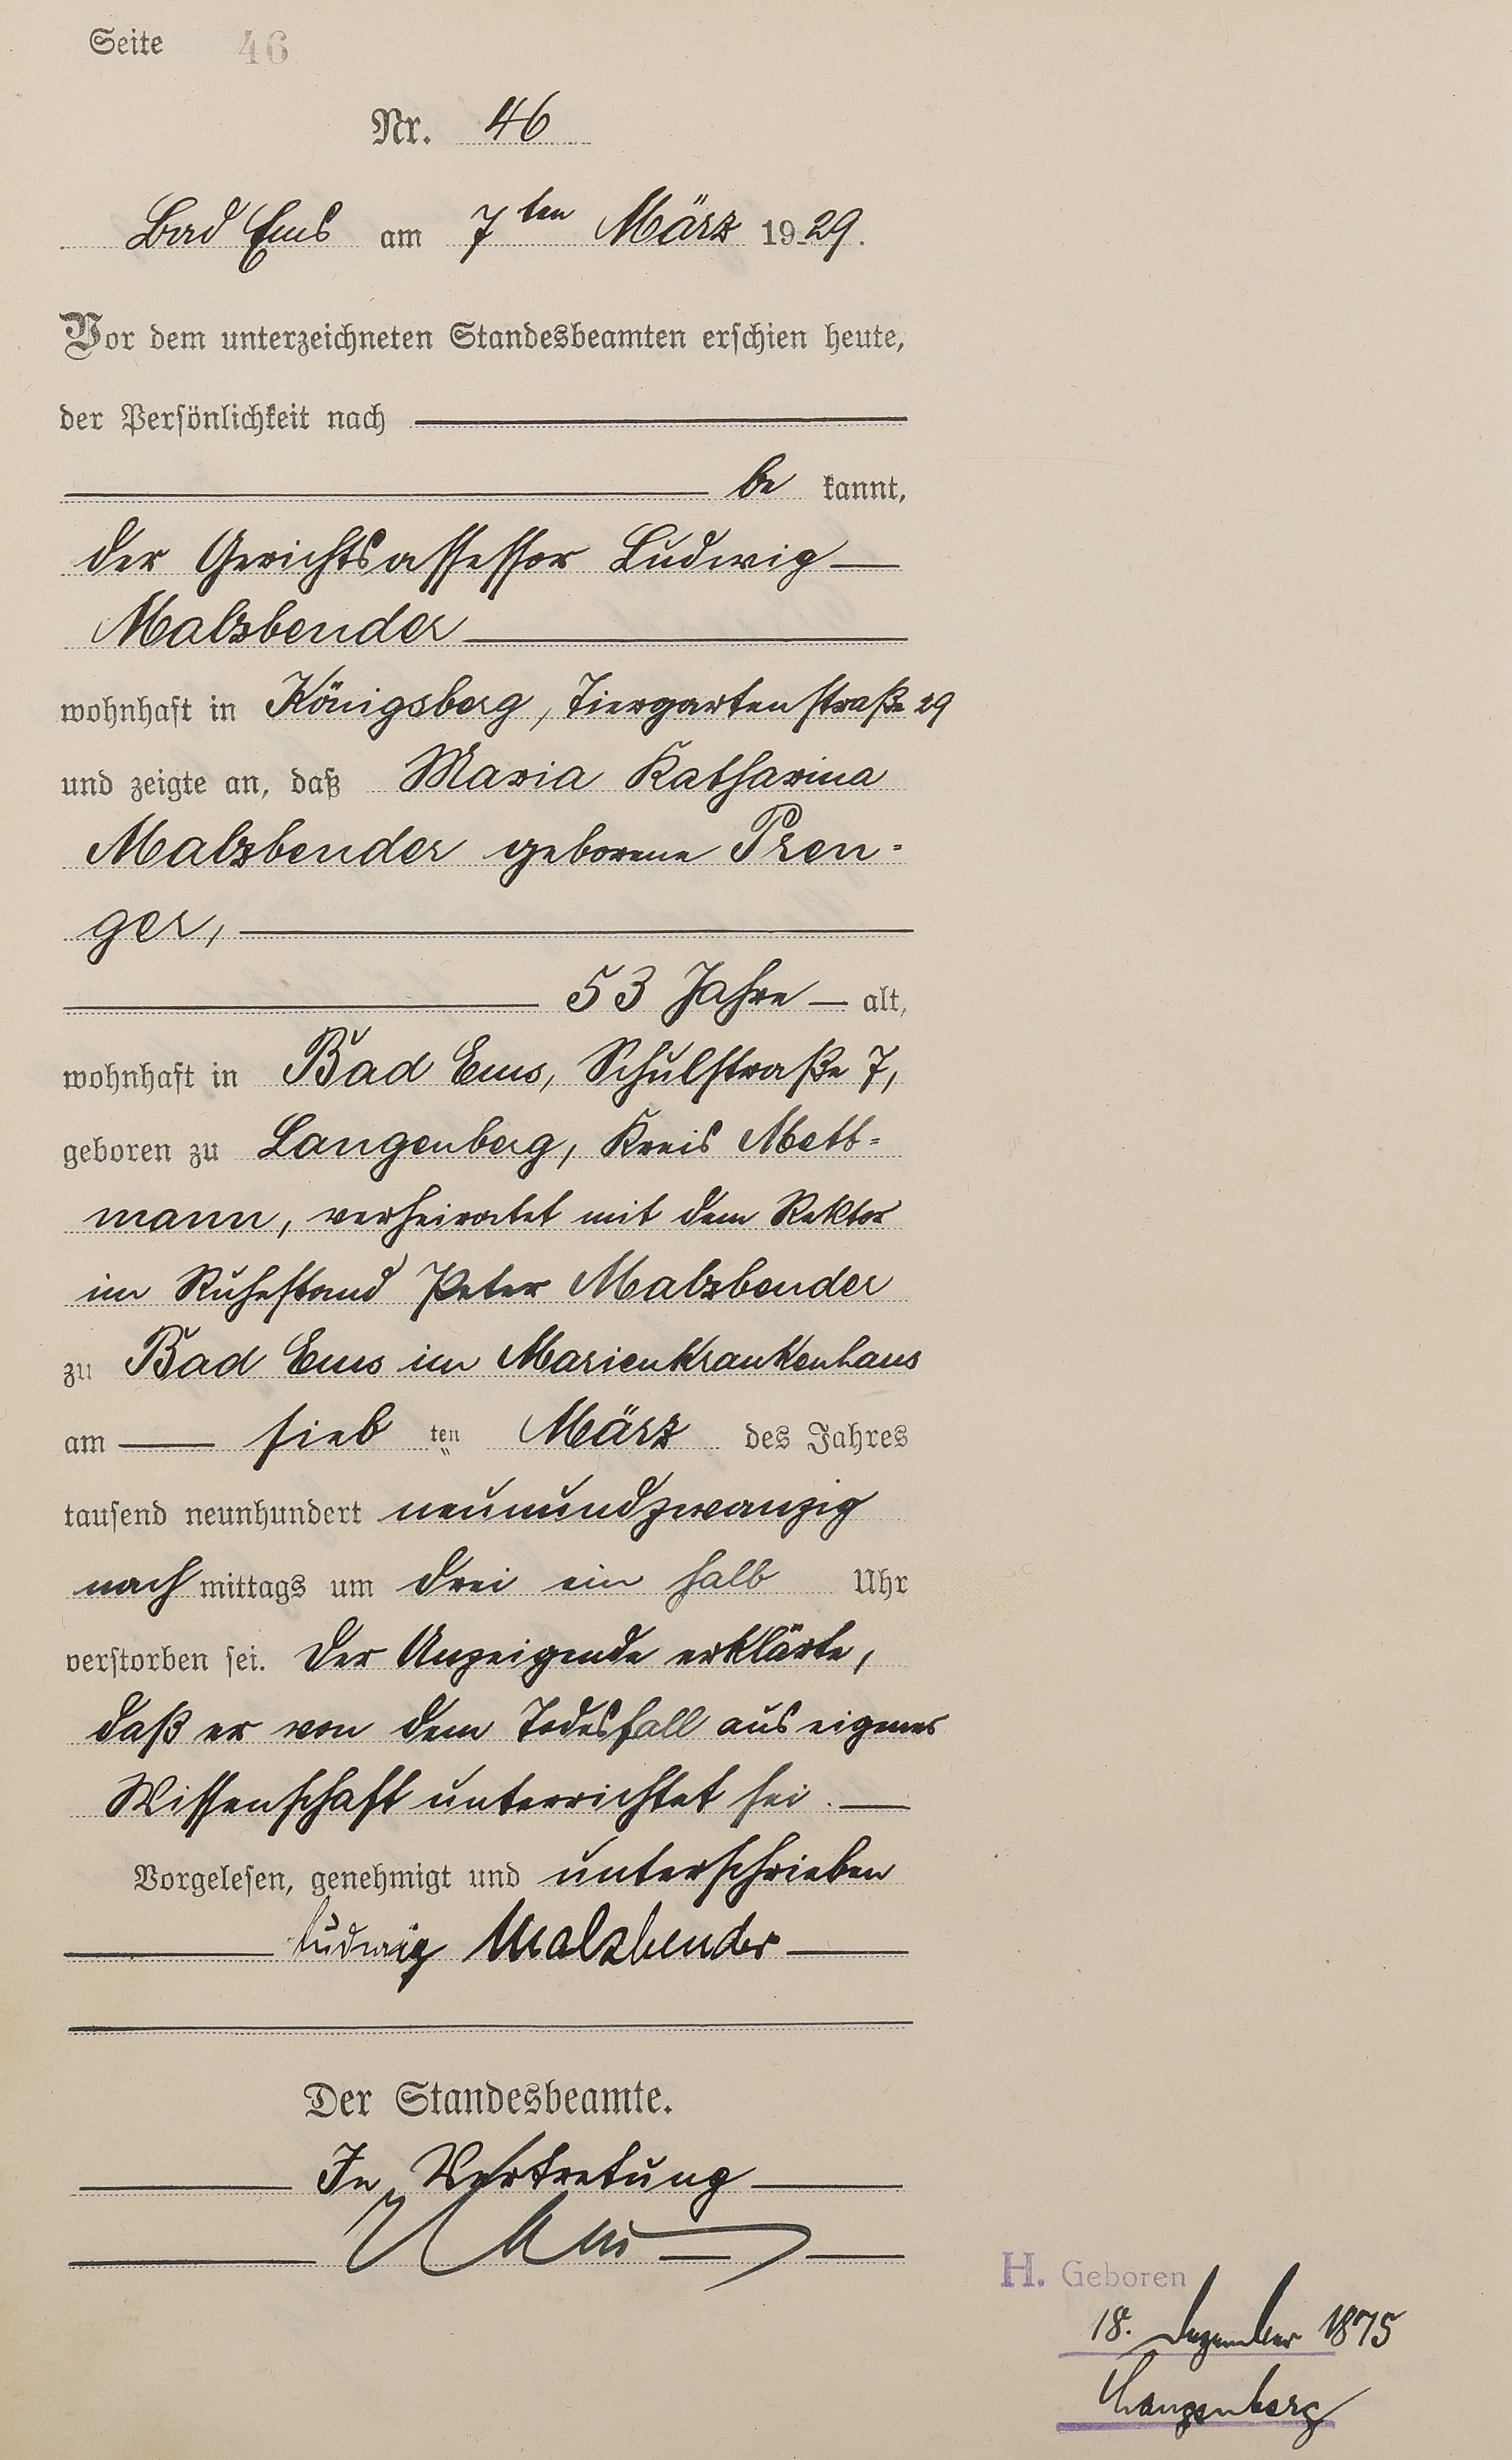 Seite 46
Nr. 46
Bad Ems am 7ten März 1929.
Vor dem unterzeichneten Standesbeamten erschien heute,
der Persönlichkeit nach
be kannt,
der Gerichtsassessor Ludwig
Malzbender
wohnhaft in Königsberg, Tiergartenstraße 29
und zeigte an, daß Maria Katharina
Malzbender geborene Pren-
ger,
53 Jahre alt,
wohnhaft in Bad Ems, Schulstraße 7,
geboren zu Langenberg, Kreis Mett-
mann, verheiratet mit dem Rektor
im Ruhestand Peter Malzbender
zu Bad Ems im Marienkrankenhaus
am sieb ten März des Jahres
tausend neunhundert neunundzwanzig
nach mittags um drei ein halb Uhr
verstorben sei. Der Anzeigende erklärte,
daß er von dem Todesfall aus eigener
Wissenschaft unterrichtet sei.
Vorgelesen, genehmigt und unterschrieben
Ludwig Malzbender
Der Standesbeamte.
In Vertretung
H. Geboren
18. Dezember 1875
Langenberg